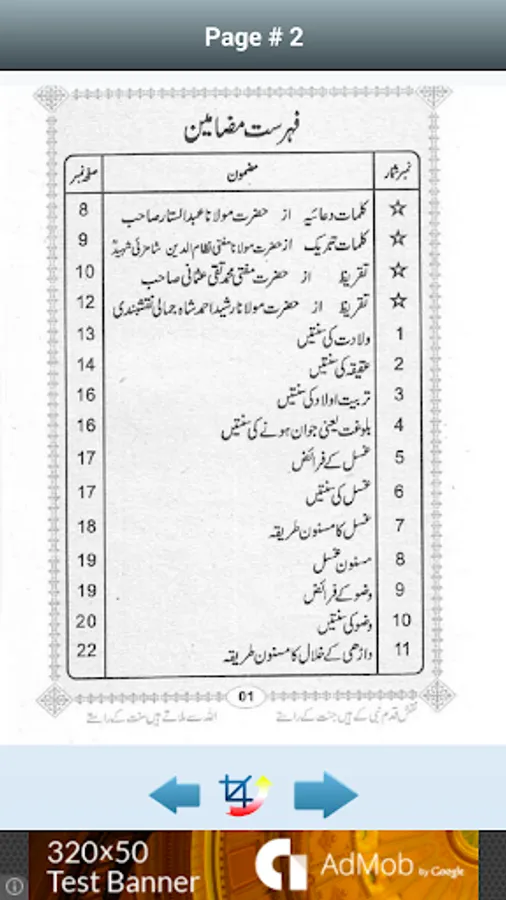 Page # 2
فہرست مضامین
نمبر شمار مضمون صفحہ نمبر
☆ کلمات دعائیہ از حضرت مولانا عبدالستار صاحب 8
☆ کلمات تبریک از حضرت مولانا مفتی نظام الدین شامزئی شہیدؒ 9
☆ تقریظ از حضرت مفتی محمد تقی عثمانی صاحب 10
☆ تقریظ از حضرت مولانا رشید احمد شاہ جمالی نقشبندی 12
1 ولادت کی سنتیں 13
2 عقیقہ کی سنتیں 14
3 تربیت اولاد کی سنتیں 16
4 بلوغت یعنی جوان ہونے کی سنتیں 16
5 غسل کے فرائض 17
6 غسل کی سنتیں 17
7 غسل کا مسنون طریقہ 18
8 مسنون غسل 19
9 وضو کے فرائض 19
10 وضو کی سنتیں 20
11 داڑھی کے خلال کا مسنون طریقہ 22
01
نقش قدم نبی کے ہیں جنت کے راستے اللہ سے ملاتے ہیں سنت کے راستے
320×50
Test Banner
AdMob by Google